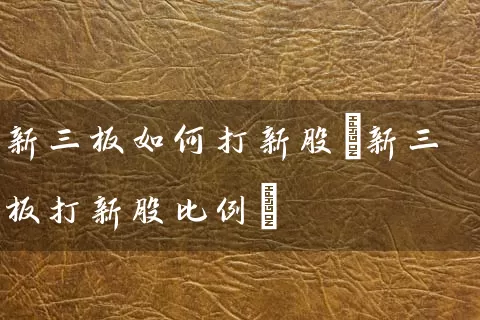 新三板如何打新股新三
板打新股比例